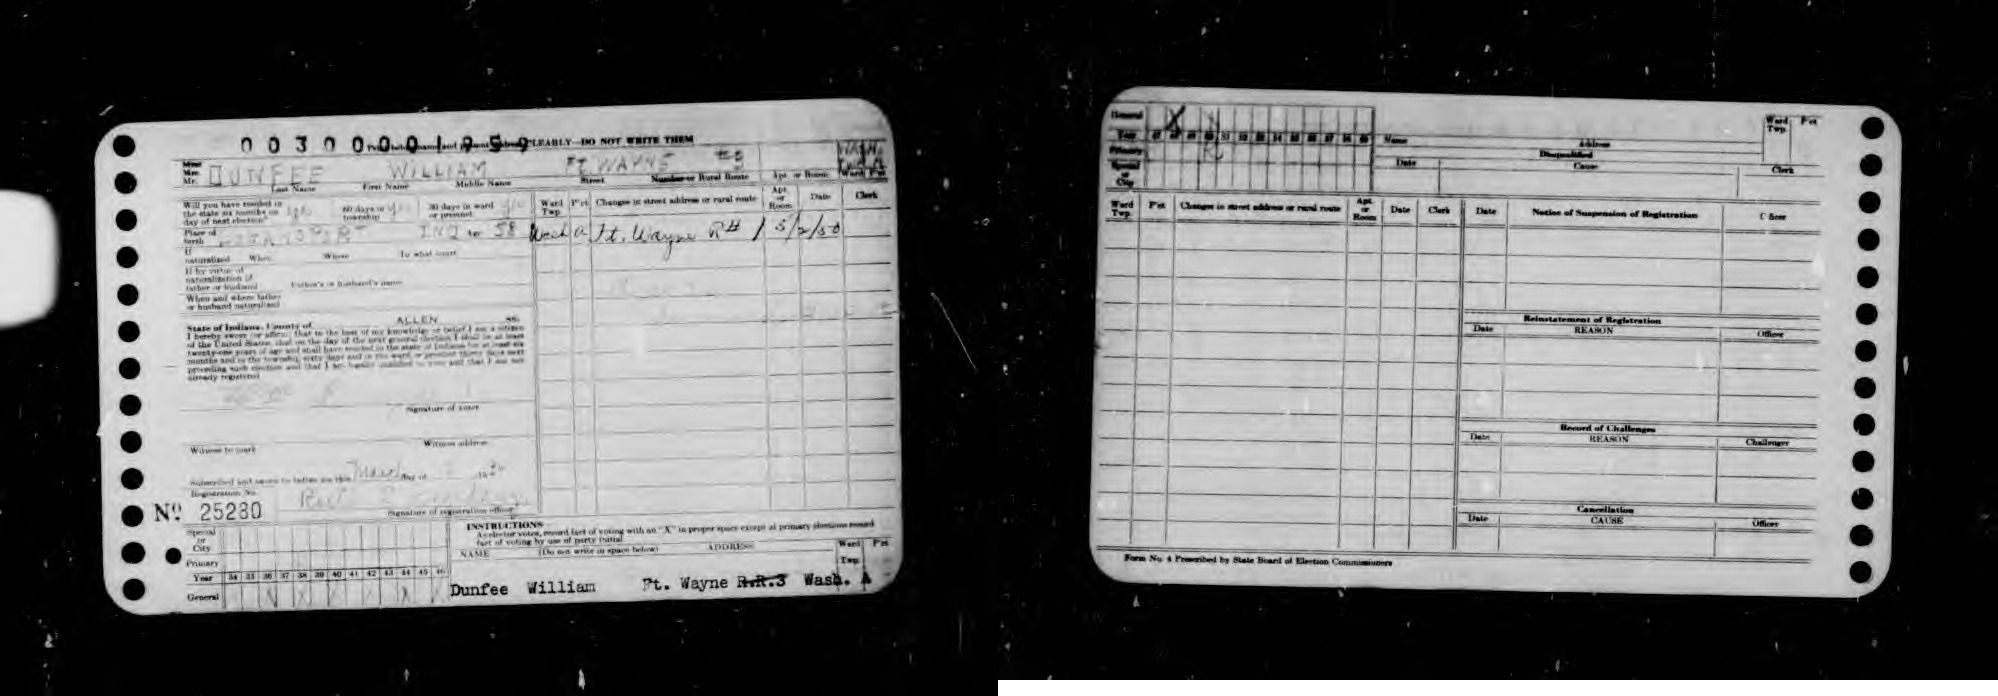 00300001959
PLEARLY—DO NOT WRITE THEM
Miss
Mrs.
Mr. DUNFEE WILLIAM FT. WAYNE #3 WASH. TWP. A
Last Name First Name Middle Name Street Number or Rural Route Apt. or Room Ward Pct
Will you have resided in
the state six months on yes 60 days in yes 30 days in ward yes
day of next election? township or precinct
Place of
birth IND 58
If
naturalized When Where To what court
If by virtue of
naturalization of
father or husband Father's or husband's name
When and where father
or husband naturalized
Ward Twp. Pct Changes in street address or rural route Apt. or Room Date Clerk
Wash A Ft. Wayne R# 1 5/2/50
State of Indiana, County of ALLEN SS:
I hereby swear or affirm that to the best of my knowledge or belief I am a citizen
of the United States, that on the day of the next general election I shall be at least
twenty-one years of age and shall have resided in the state of Indiana for at least six
months and in the township sixty days and in the ward or precinct thirty days next
preceding such election and that I am legally entitled to vote and that I am not
already registered
Signature of voter
Witness to mark Witness address
Subscribed and sworn to before me this March day of 19
Registration No.
Nº 25280
Signature of registration officer
INSTRUCTIONS
As elector votes, record fact of voting with an "X" in proper space except at primary elections record
fact of voting by use of party initial
NAME (Do not write in space below) ADDRESS Ward Twp. Pct
Dunfee William Ft. Wayne R.R.3 Wash. A
Special
or
City
Primary
Year 34 35 36 37 38 39 40 41 42 43 44 45 46
General X X X X X
General X
Year 47 48 49 50 51 52 53 54 55 56 57 58 59
Primary R
Special
or
City
Name Address Ward Twp. Pct
Disqualified
Date Cause Clerk
Ward Twp. Pct Changes in street address or rural route Apt. or Room Date Clerk
Date Notice of Suspension of Registration Officer
Reinstatement of Registration
Date REASON Officer
Record of Challenges
Date REASON Challenger
Cancellation
Date CAUSE Officer
Form No. 4 Prescribed by State Board of Election Commissioners